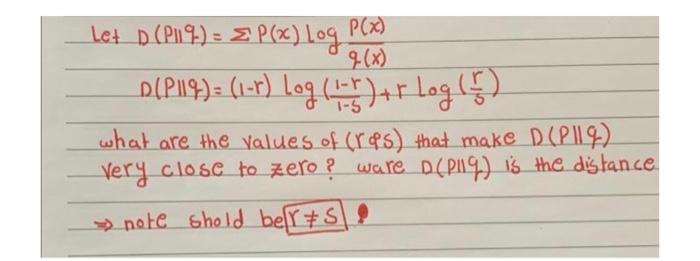 Let D(P||q) = Σ P(x) Log P(x)/q(x)
D(P||q) = (1-r) Log (1-r/1-s) + r Log (r/s)
what are the values of (r & s) that make D(P||q)
very close to zero? ware D(P||q) is the distance
⇒ note shold be r ≠ s !